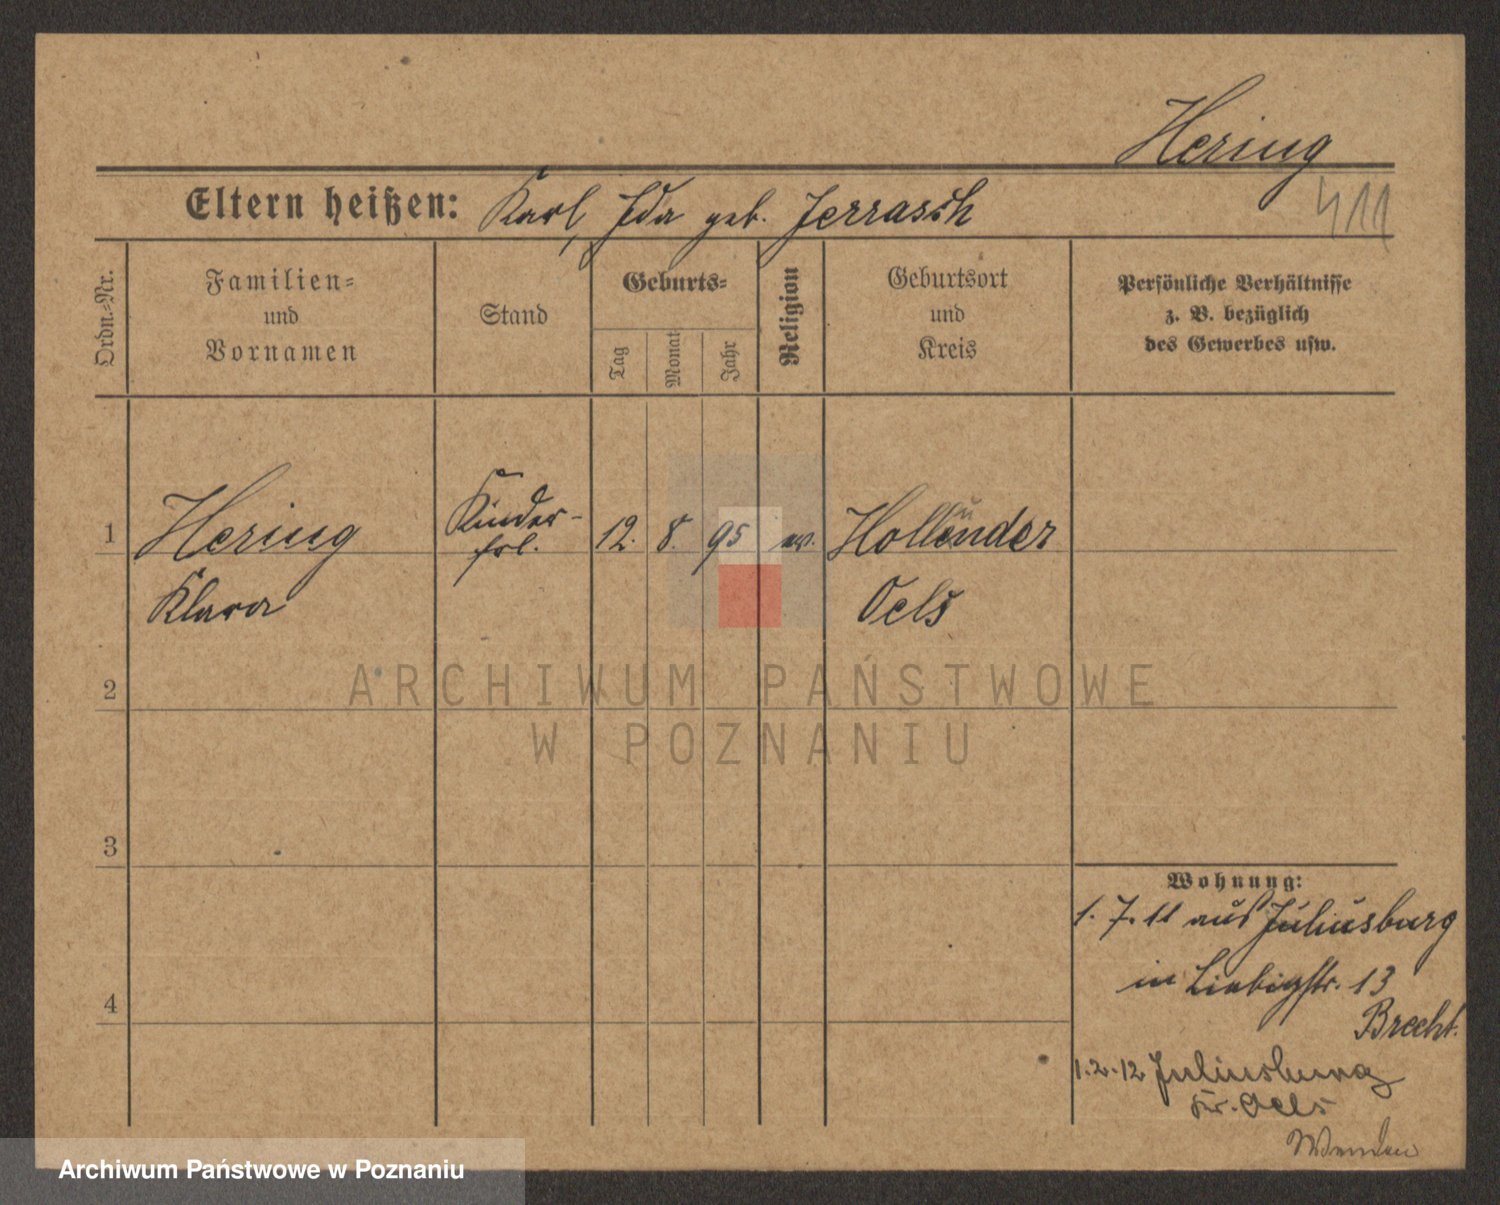 Hering
411
Eltern heißen: Karl, Ida geb. Jerrasch
Ordn.-Nr.
Familien-
und
Vornamen
Stand
Geburts-
Tag
Monat
Jahr
Religion
Geburtsort
und
Kreis
Persönliche Verhältnisse
z. B. bezüglich
des Gewerbes usw.
1
Hering
Klara
Kinder-
frl.
12. 8. 95 ev.
Oels
2
3
4
Wohnung:
1. 7. 11 aus Juliusburg
in Liebigstr. 13
Brecht.
1.2.12 Juliusburg
Kr. Oels
ARCHIWUM PAŃSTWOWE
W POZNANIU
Archiwum Państwowe w Poznaniu